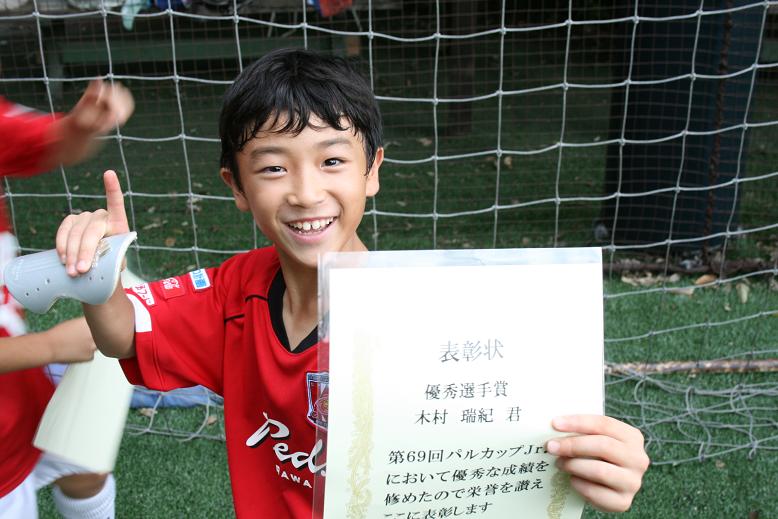 表彰状
優秀選手賞
木村 瑞紀 君
第69回パルカップJr.
において優秀な成績を
修めたので栄誉を讃え
ここに表彰します